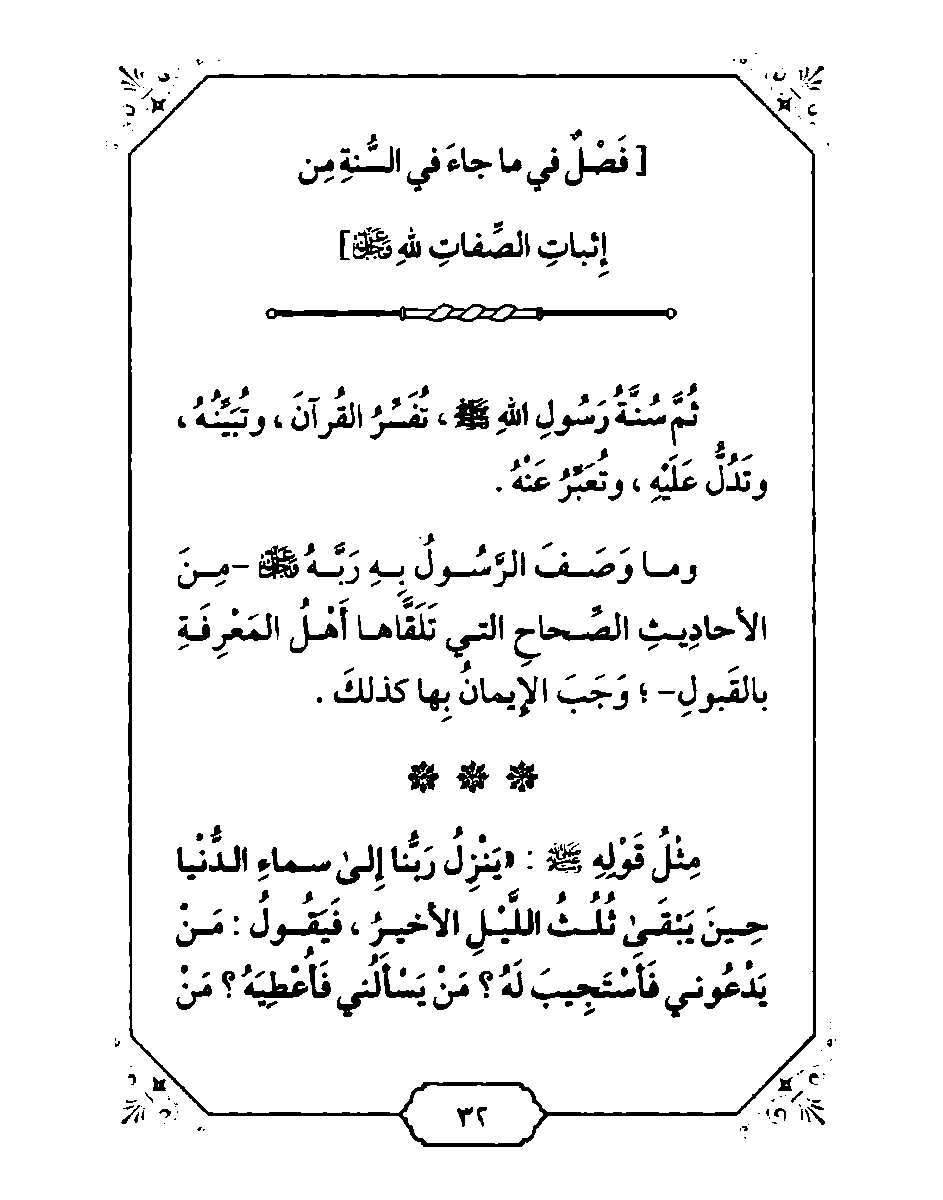 [ فَصْلٌ في ما جاءَ في السُّنةِ مِن
إِثباتِ الصِّفاتِ للهِ عَزَّ وَجَلَّ]
ثُمَّ سُنَّةُ رَسُولِ اللهِ ﷺ ، تُفَسِّرُ القُرآنَ ، وتُبَيِّنُهُ ،
وتَدُلُّ عَلَيْهِ ، وتُعَبِّرُ عَنْهُ .
وما وَصَفَ الرَّسُولُ بِهِ رَبَّهُ عَزَّ وَجَلَّ -مِنَ
الأحادِيثِ الصِّحاحِ التي تَلَقَّاها أَهْلُ المَعْرِفَةِ
بالقَبولِ- ؛ وَجَبَ الإيمانُ بِها كذلكَ .
مِثْلُ قَوْلِهِ ﷺ : «يَنْزِلُ رَبُّنا إِلىٰ سماءِ الدُّنْيا
حِينَ يَبْقَىٰ ثُلُثُ اللَّيْلِ الأخيرُ ، فَيَقُولُ : مَنْ
يَدْعُوني فَأَسْتَجِيبَ لَهُ ؟ مَنْ يَسْأَلُني فَأُعْطِيَهُ ؟ مَنْ
٣٢